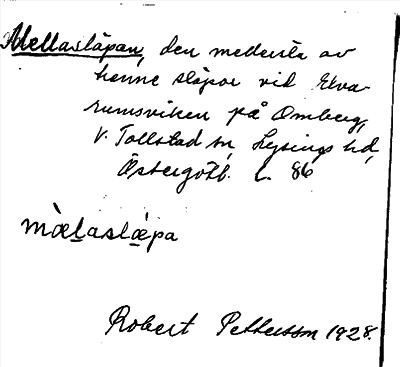 Mellasläpan, den medersta av
henne släpor vid Elva-
rumsviken på Omberg,
V. Tollstad sn, Lysings hd,
Östergötl. L. 86
mælaslæpa
Robert Pettersson 1928.